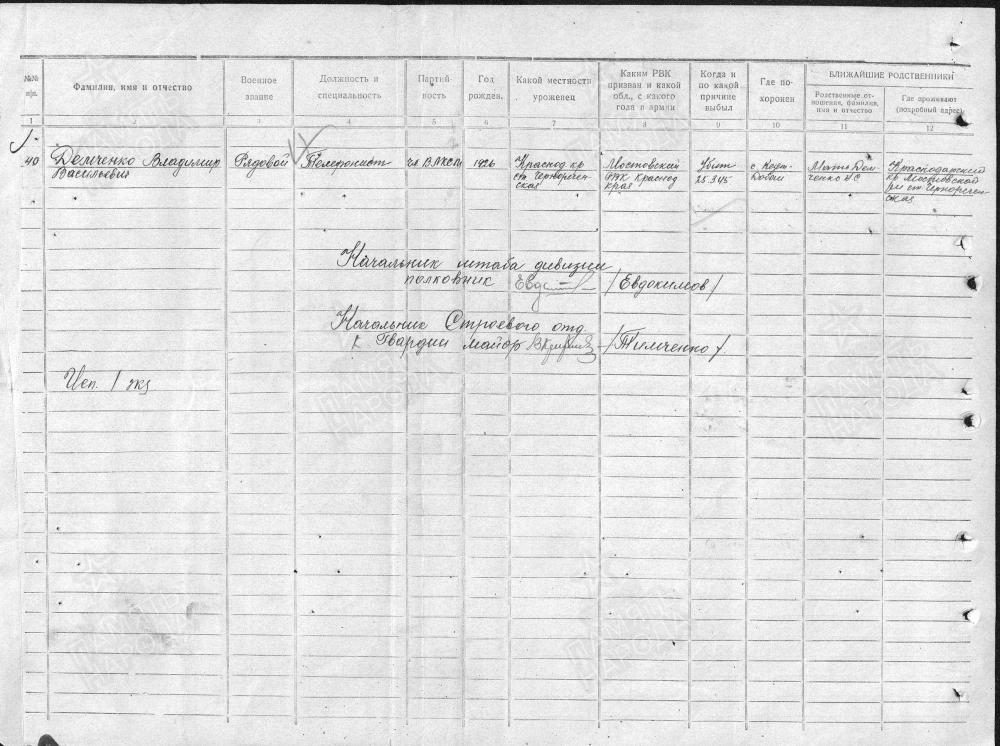 №№ п/п.
Фамилия, имя и отчество
Военное звание
Должность и специальность
Партийность
Год рожден.
Какой местности уроженец
Каким РВК призван и какой обл., с какого года в армии
Когда и по какой причине выбыл
Где похоронен
БЛИЖАЙШИЕ РОДСТВЕННИКИ
Родственные отношения, фамилия, имя и отчество
Где проживают (подробный адрес)
1 3 4 5 6 7 8 9 10 11 12
40 Демченко Владимир Рядовой Телефонист чл ВЛКСМ 1926 Краснод кр Мостовский Убит с. Мать Дем- Краснодарский
Васильевич ст Черноречен- РВК Краснод 25.3.45 ченко кр Мостовской
ская края рн ст Черноречен-
ская
Начальник штаба дивизии
полковник /Евдокимов/
Начальник Строевого отд.
Гвардии майор /Тимченко/.
Исп. 1 экз
ПАМЯТЬ НАРОДА
ПАМЯТЬ НАРОДА
ПАМЯТЬ НАРОДА
ПАМЯТЬ НАРОДА